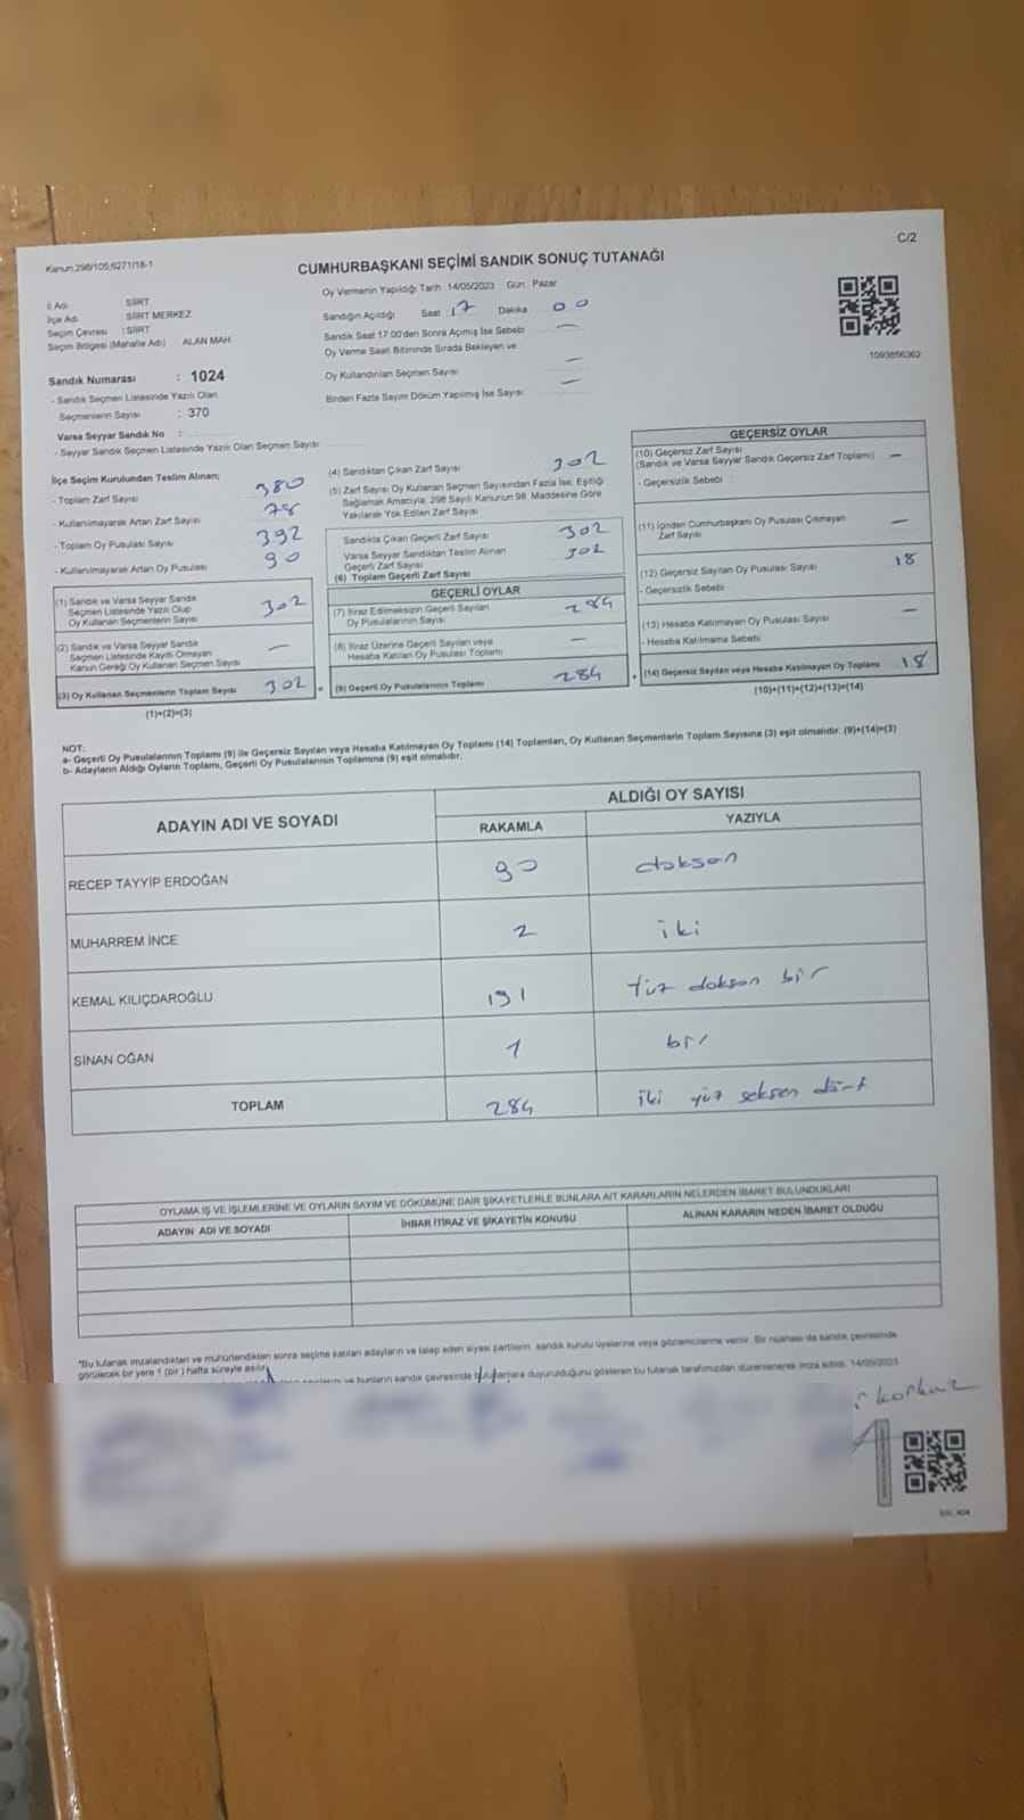 Kanun:298/105,6271/18-1
C/2
CUMHURBAŞKANI SEÇİMİ SANDIK SONUÇ TUTANAĞI
İl Adı : SİİRT
İlçe Adı : SİİRT MERKEZ
Seçim Çevresi : SİİRT
Seçim Bölgesi (Mahalle Adı) ALAN MAH.
Sandık Numarası : 1024
- Sandık Seçmen Listesinde Yazılı Olan
Seçmenlerin Sayısı : 370
Varsa Seyyar Sandık No :
- Seyyar Sandık Seçmen Listesinde Yazılı Olan Seçmen Sayısı
Oy Vermenin Yapıldığı Tarih :14/05/2023 Gün: Pazar
Sandığın Açıldığı Saat : 17 Dakika 00
Sandık Saat 17:00'den Sonra Açılmış İse Sebebi —
Oy Verme Saati Bitiminde Sırada Bekleyen ve
Oy Kullandırılan Seçmen Sayısı —
Birden Fazla Sayım Döküm Yapılmış İse Sayısı —
1093856362
İlçe Seçim Kurulundan Teslim Alınan;
- Toplam Zarf Sayısı 380
- Kullanılmayarak Artan Zarf Sayısı 78
- Toplam Oy Pusulası Sayısı 392
- Kullanılmayarak Artan Oy Pusulası 90
(1) Sandık ve Varsa Seyyar Sandık
Seçmen Listesinde Yazılı Olup
Oy Kullanan Seçmenlerin Sayısı 302
(2) Sandık ve Varsa Seyyar Sandık
Seçmen Listesinde Kaydı Olmayan
Kanun Gereği Oy Kullanan Seçmen Sayısı —
(3) Oy Kullanan Seçmenlerin Toplam Sayısı 302
(1)+(2)=(3)
(4) Sandıktan Çıkan Zarf Sayısı 302
(5) Zarf Sayısı Oy Kullanan Seçmen Sayısından Fazla İse, Eşitliği
Sağlamak Amacıyla, 298 Sayılı Kanunun 98. Maddesine Göre
Yakılarak Yok Edilen Zarf Sayısı
Sandıkta Çıkan Geçerli Zarf Sayısı 302
Varsa Seyyar Sandıktan Teslim Alınan
Geçerli Zarf Sayısı
(6) Toplam Geçerli Zarf Sayısı 302
GEÇERLİ OYLAR
(7) İtiraz Edilmeksizin Geçerli Sayılan
Oy Pusulalarının Sayısı 284
(8) İtiraz Üzerine Geçerli Sayılan veya
Hesaba Katılan Oy Pusulası Toplamı —
(9) Geçerli Oy Pusulalarının Toplamı 284
GEÇERSİZ OYLAR
(10) Geçersiz Zarf Sayısı
(Sandık ve Varsa Seyyar Sandık Geçersiz Zarf Toplamı) —
- Geçersizlik Sebebi :
(11) İçinden Cumhurbaşkanı Oy Pusulası Çıkmayan
Zarf Sayısı —
(12) Geçersiz Sayılan Oy Pusulası Sayısı 18
- Geçersizlik Sebebi
(13) Hesaba Katılmayan Oy Pusulası Sayısı —
- Hesaba Katılmama Sebebi
(14) Geçersiz Sayılan veya Hesaba Katılmayan Oy Toplamı 18
(10)+(11)+(12)+(13)=(14)
NOT:
a- Geçerli Oy Pusulalarının Toplamı (9) ile Geçersiz Sayılan veya Hesaba Katılmayan Oy Toplamı (14) Toplamları, Oy Kullanan Seçmenlerin Toplam Sayısına (3) eşit olmalıdır. (9)+(14)=(3)
b- Adayların Aldığı Oyların Toplamı, Geçerli Oy Pusulalarının Toplamına (9) eşit olmalıdır.
ADAYIN ADI VE SOYADI
ALDIĞI OY SAYISI
RAKAMLA YAZIYLA
RECEP TAYYİP ERDOĞAN 90 doksan
MUHARREM İNCE 2 iki
KEMAL KILIÇDAROĞLU 191 Yüz doksan bir
SİNAN OĞAN 1 bir
TOPLAM 284 iki yüz seksen dört
OYLAMA İŞ VE İŞLEMLERİNE VE OYLARIN SAYIM VE DÖKÜMÜNE DAİR ŞİKAYETLERLE BUNLARA AİT KARARLARIN NELERDEN İBARET BULUNDUKLARI
ADAYIN ADI VE SOYADI İHBAR İTİRAZ VE ŞİKAYETİN KONUSU ALINAN KARARIN NEDEN İBARET OLDUĞU
*Bu tutanak imzalandıktan ve mühürlendikten sonra seçime katılan adayların ve talep eden siyasi partilerin sandık kurulu üyelerine veya gözlemcilerine verilir. Bir nüshası da sandık çevresinde
görülecek bir yere 1 (bir) hafta süreyle asılır.
ve bunların sandık çevresinde bulunanlara duyurulduğunu gösteren bu tutanak tarafımızdan düzenlenerek imza edildi. 14/05/2023
korkmaz